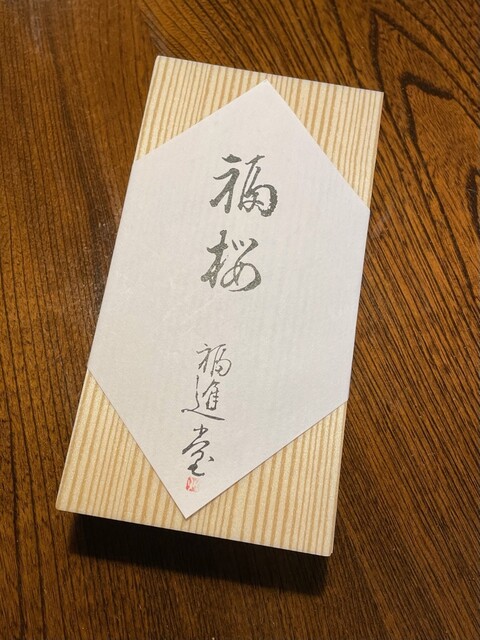 福桜
福進堂